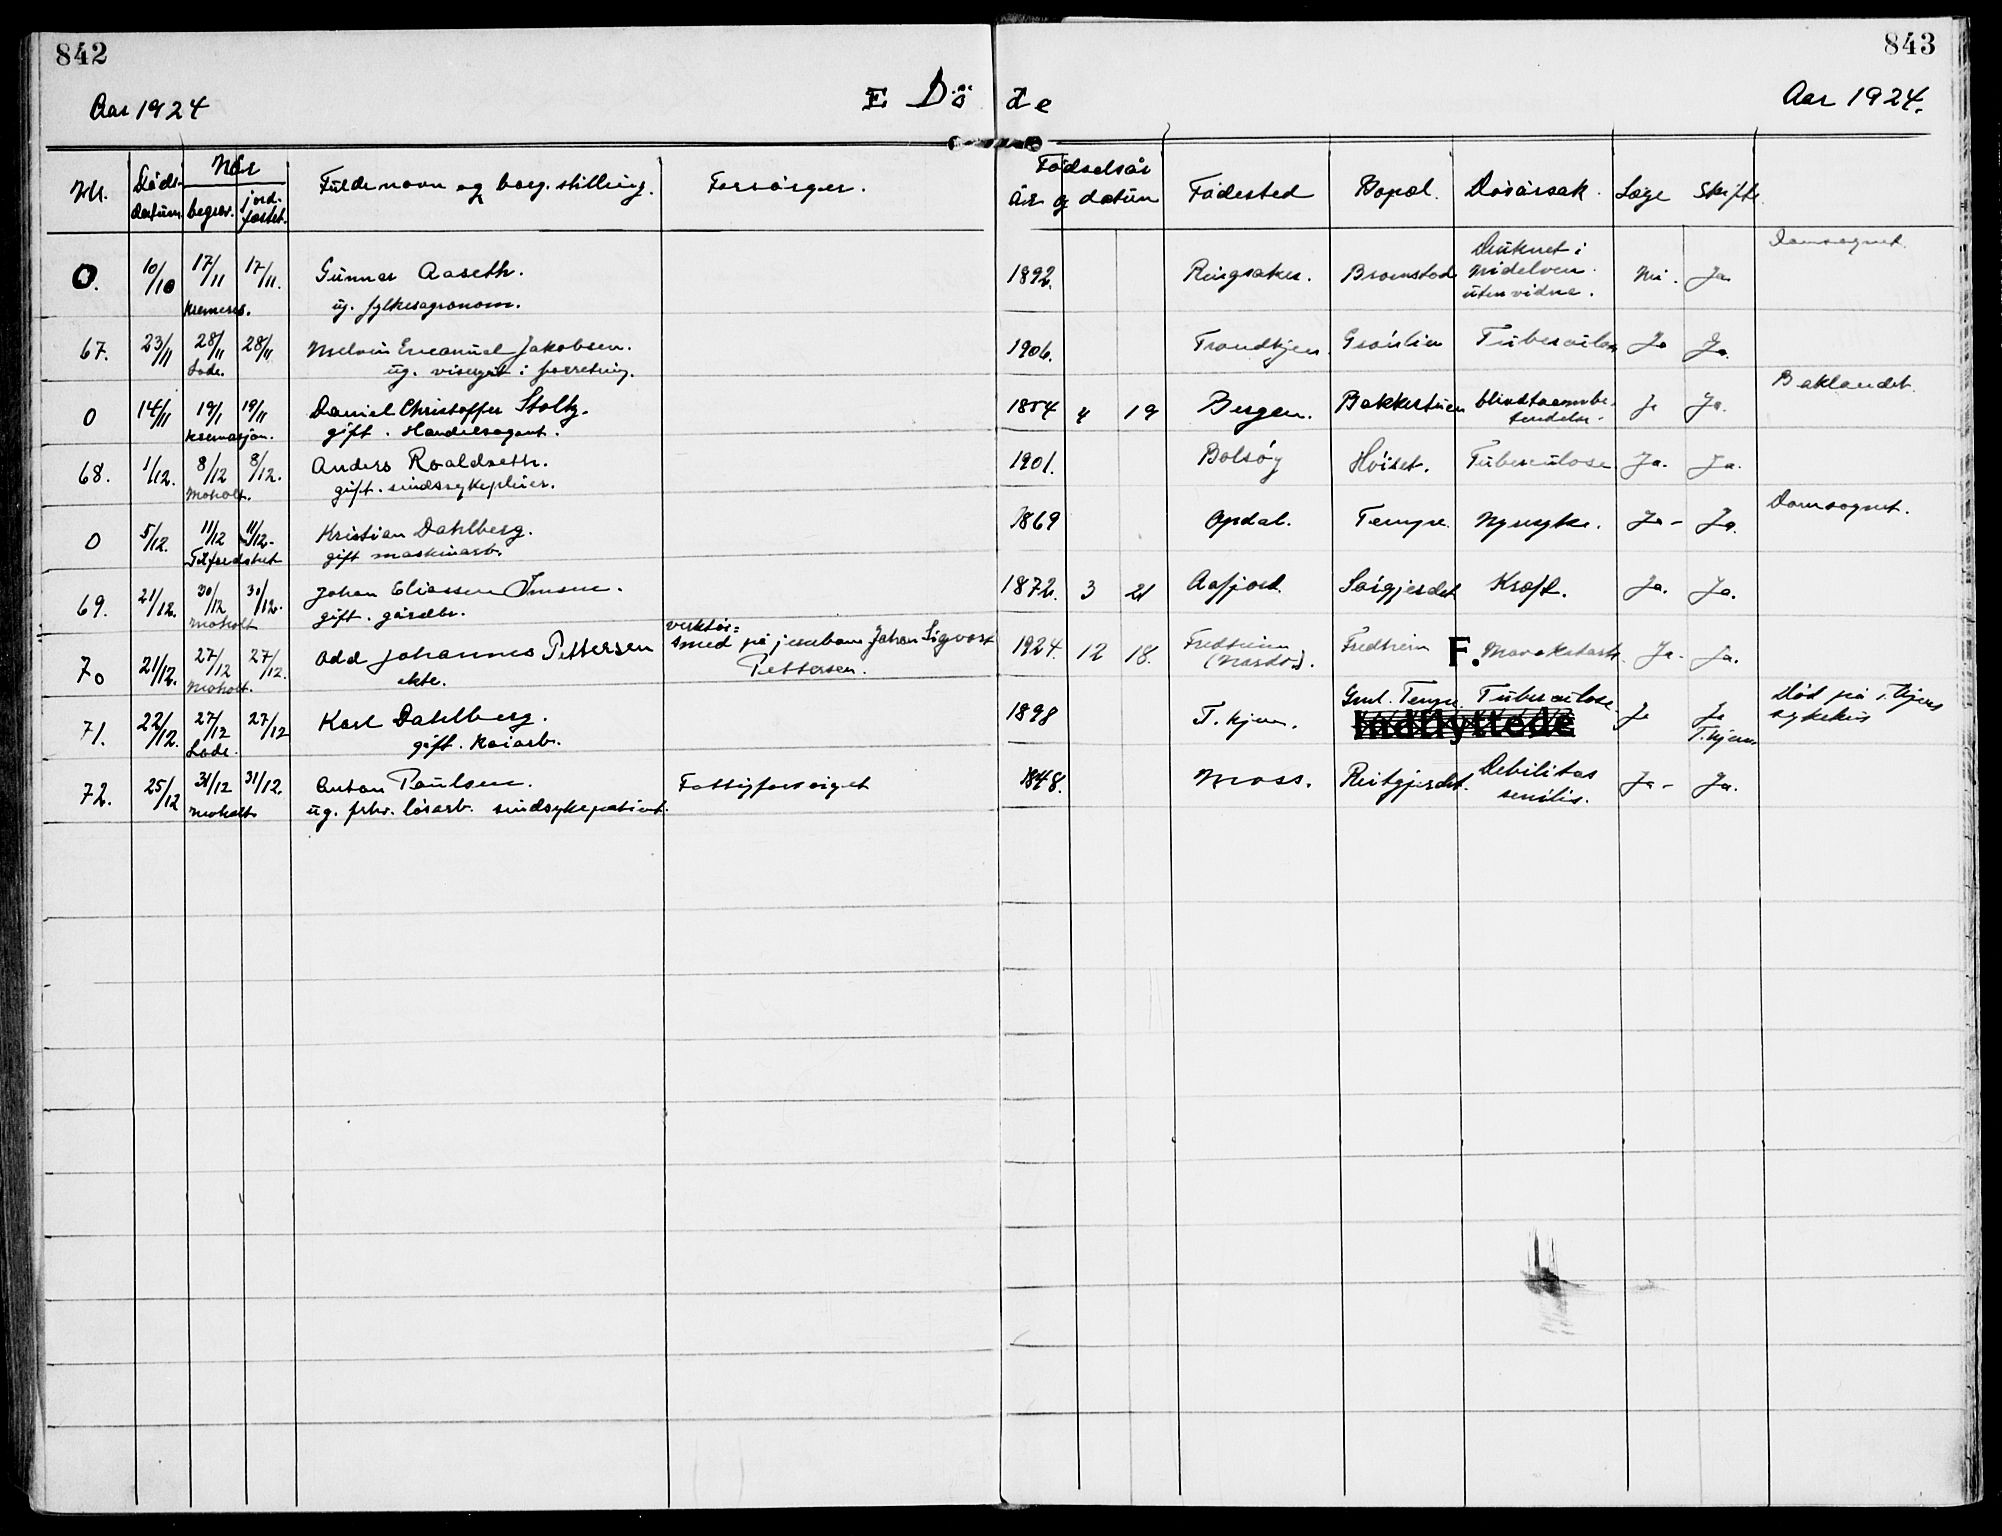 842
843
Aar 1924
E Dö
de
Aar 1924.
Nr.
Döds-
datum
Når
begrav.
jord-
fæstet.
Fulde navn og borg. stilling.
Forsörger.
Födselsår
År og datum
Födested
Bopæl.
Dösårsak.
Læge
Skifte
O.
10/10
17/11
17/11.
kremeres.
Gunnar Aaseth.
ug. fylkesagronom.
1892.
Ringsaker.
Bromstad
Druknet i
Nidelven
uten vidne.
Nei.
Ja.
Domsognet.
67.
23/11
28/11
28/11
Lade.
Melvin Emanuel Jakobsen.
ug. visergut i forretning.
1906.
Trondhjem.
Gråulien
Tuberculose
Ja
Ja.
O
14/11
19/1
19/11
kremasjon.
Daniel Christoffer Stoltz.
gift. Handelsagent.
1854
4
19
Bergen.
Bakkestuen
blindtarmbe-
tendelse.
Ja
Ja.
Baklandet.
68.
1/12.
8/12
8/12.
Moholt.
Anders Roaldseth.
gift. sindssykepleier.
1901.
Bolsöy
Höiset.
Tuberculose
Ja.
Ja.
O
5/12.
11/12
11/12.
Tilfredshet
Kristian Dahlberg.
gift maskinarb.
1869
Opdal.
Tempe.
Nyresyke.
Ja-
Ja.
Domsognet.
69.
21/12.
30/12
30/12.
Moholt
Johan Eliassen Imsen.
gift. gårdbr.
1872.
3
21
Aafjord.
Sorgjerdet
Kræft.
Ja.
Ja.
70
21/12.
27/12
27/12.
Moholt.
Odd Johannes Pettersen
ekte.
verktöi-
smed på jernbanen Johan Sigvart
Pettersen.
1924.
12
18.
Fredheim
(Nardo).
Fredheim
F.
Mavekatarrh
Ja-
Ja.
71.
22/12.
27/12
27/12
Lade.
Karl Dahlberg.
gift. kaiarb.
1898
T.hjem.
Gml. Tempe.
Tuberculose
Indflyttede
Ja
Ja
T.hjem.
Död på T.hjems
sykehus
72.
25/12
31/12
31/12.
Moholt
Anton Paulsen.
ug. fhv. lösarb. sindsykepatient.
Fattigforsörget
1848.
Moss.
Reitgjerdet.
Debilitas
senilis.
Ja-
Ja.